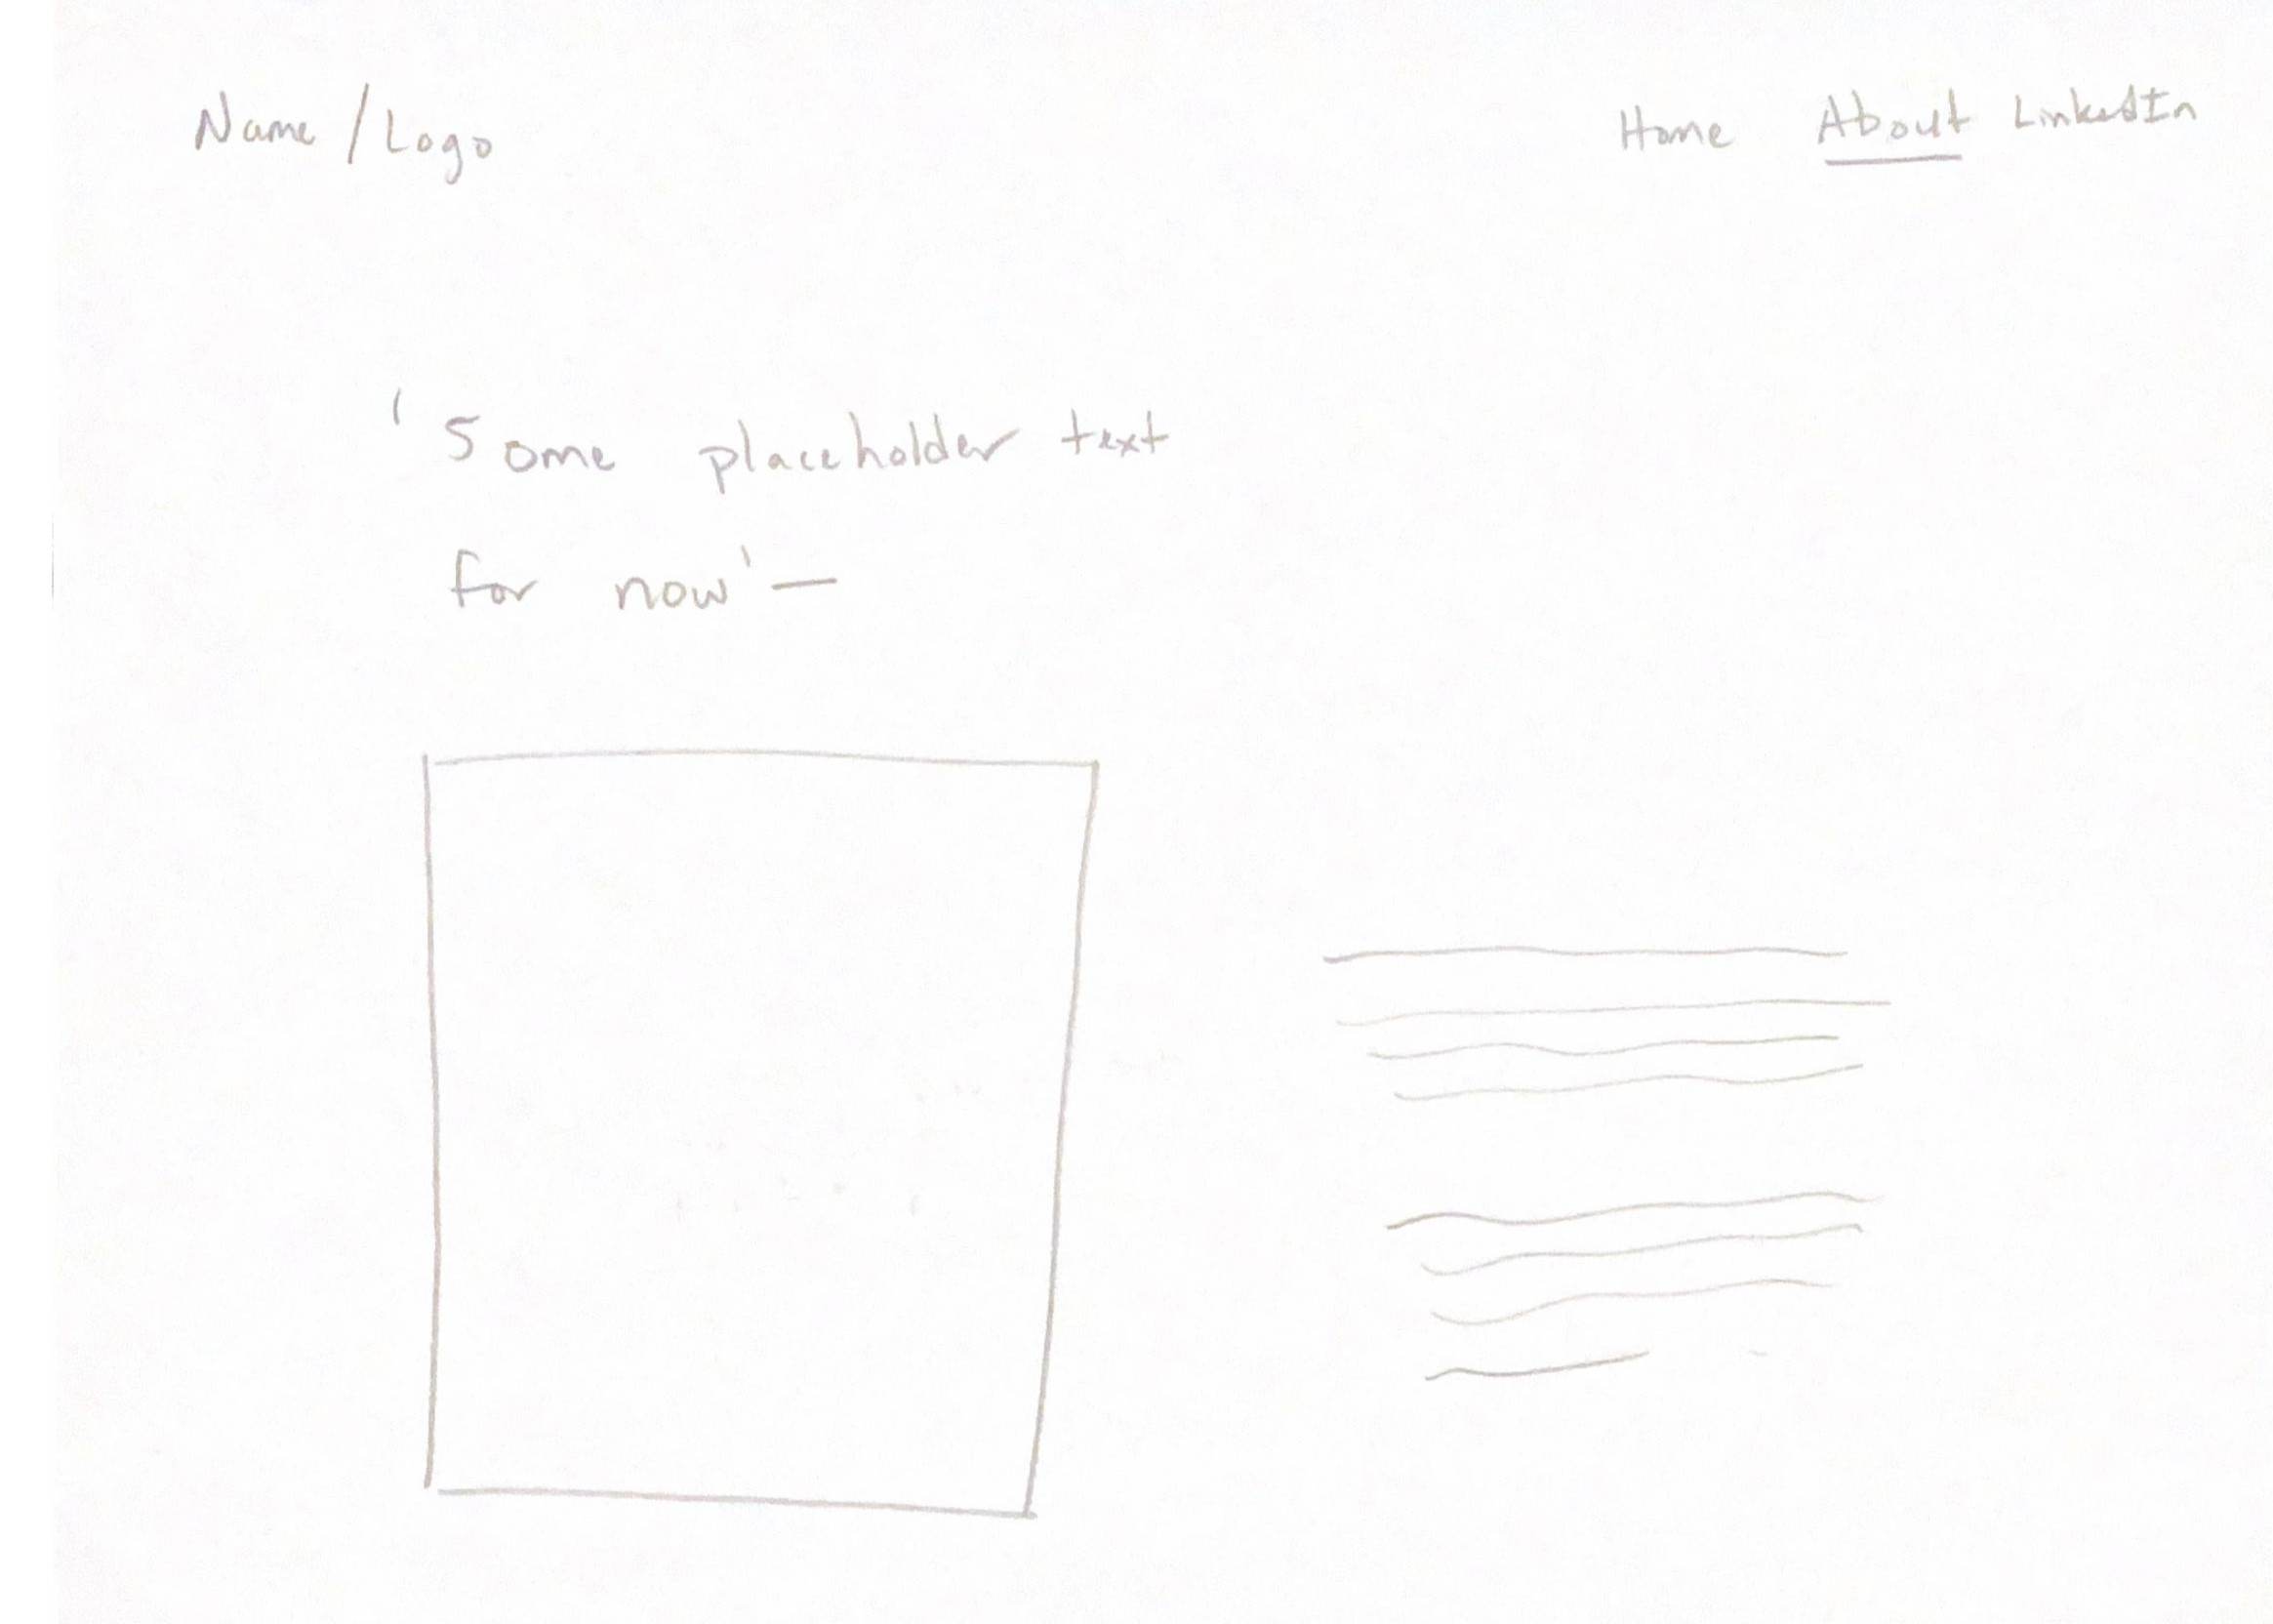 Name / Logo
Home About LinkedIn
'Some placeholder text
for now' —